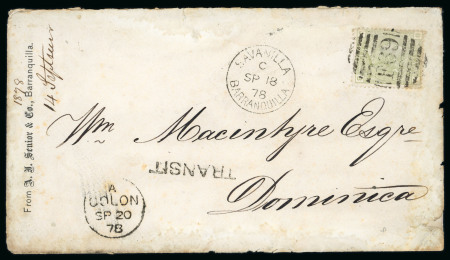 From A. J. Senior & Co., Barranquilla.
1878
14 Septiem
SAVANILLA
C
SP 18
78
BARRANQUILLA
Wm Macintyre Esqre
TRANSIT
Dominica
A
COLON
SP 20
78